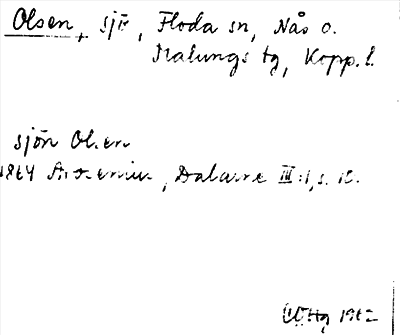 Olsen, sjö, Floda sn, Nås o.
Malungs tg, Kopp. l.
sjön Olsen
1864 Arosenius, Dalarne III:1, s.
1962